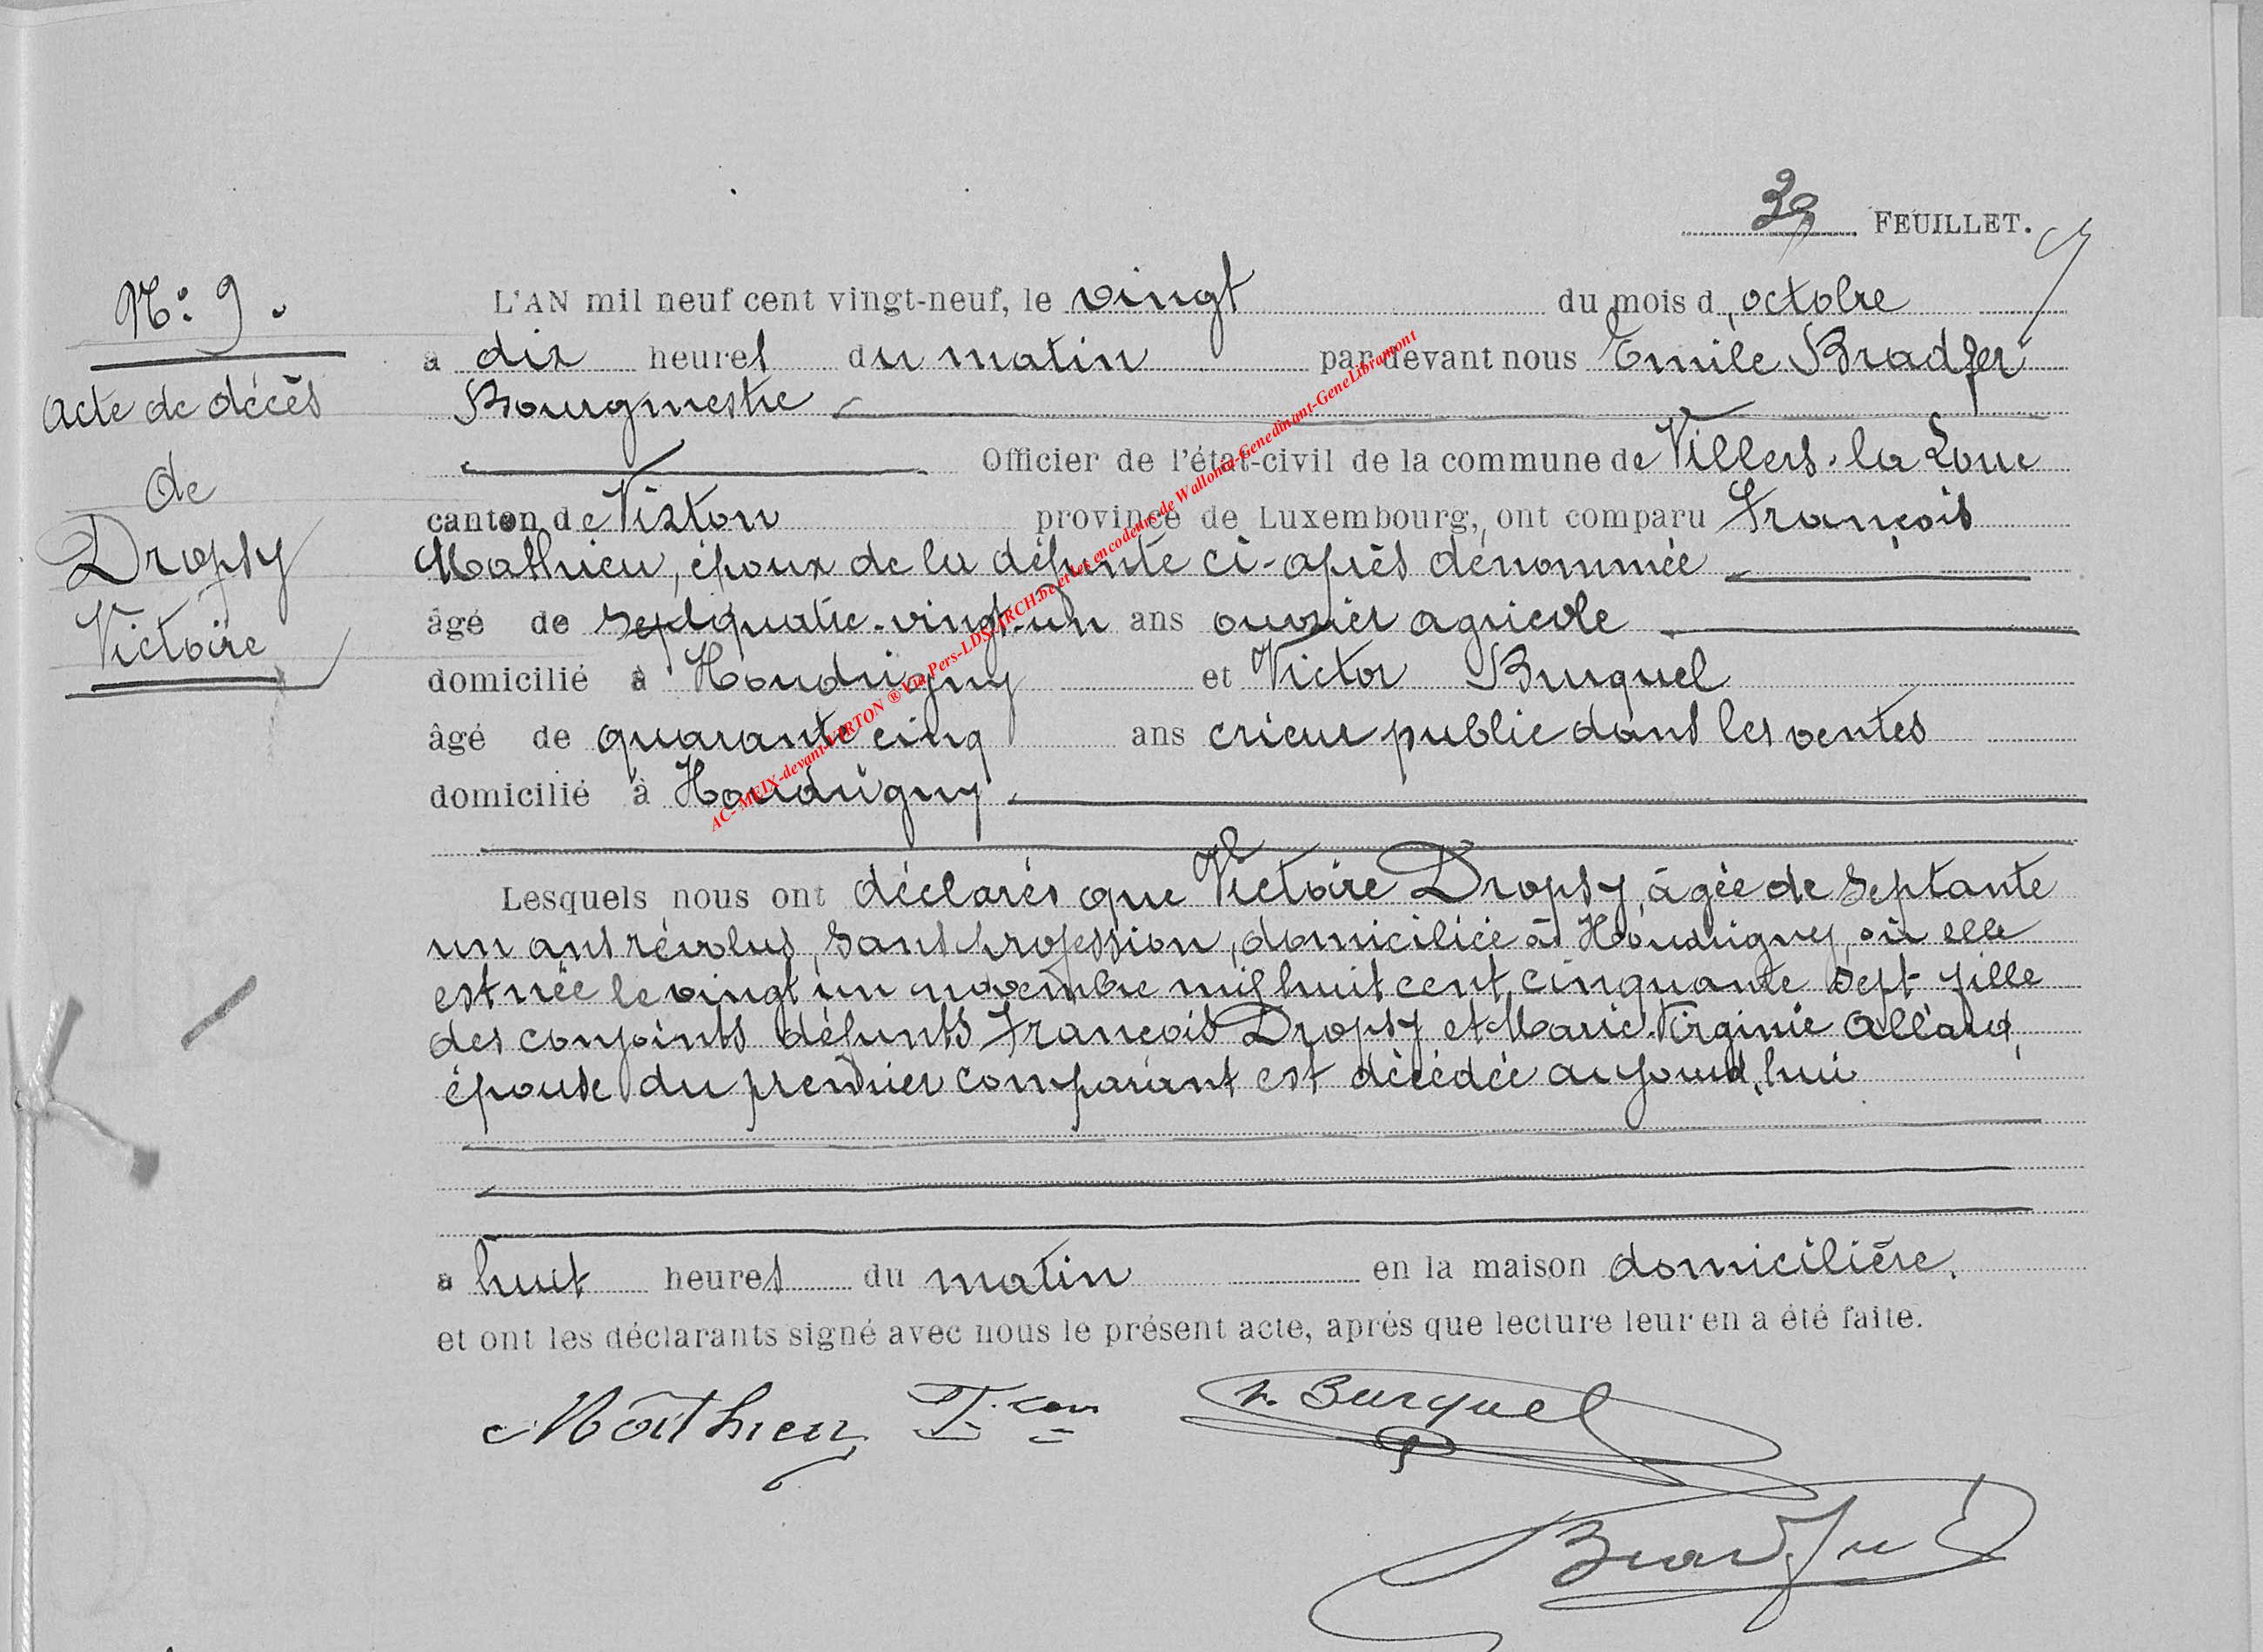 39 FEUILLET.
N: 9.
Acte de décès
de
Dropsy
Victoire
L'AN mil neuf cent vingt-neuf, le vingt du mois d'octobre
à dix heures du matin par devant nous Emile Bradfer
Bourgmestre
Officier de l'état-civil de la commune de Villers-la Loue
canton de Virton province de Luxembourg, ont comparu François
Mathieu, époux de la défunte ci-après dénommée
âgé de sept quatre-vingt-un ans ouvrier agricole
domicilié à Houdrigny et Victor Burquel
âgé de quarante cinq ans crieur public dans les ventes
domicilié à Houdrigny.
Lesquels nous ont déclarés que Victoire Dropsy, âgée de septante
un ans révolus, sans profession, domiciliée à Houdrigny, où elle
est née le vingt un novembre mil huit cent cinquante sept fille
des conjoints défunts François Dropsy et Marie-Virginie Allard,
épouse du premier comparant est décédée aujourd'hui
à huit heures du matin en la maison domicilière.
et ont les déclarants signé avec nous le présent acte, après que lecture leur en a été faite.
Mathieu V. Burquel
Bradfer